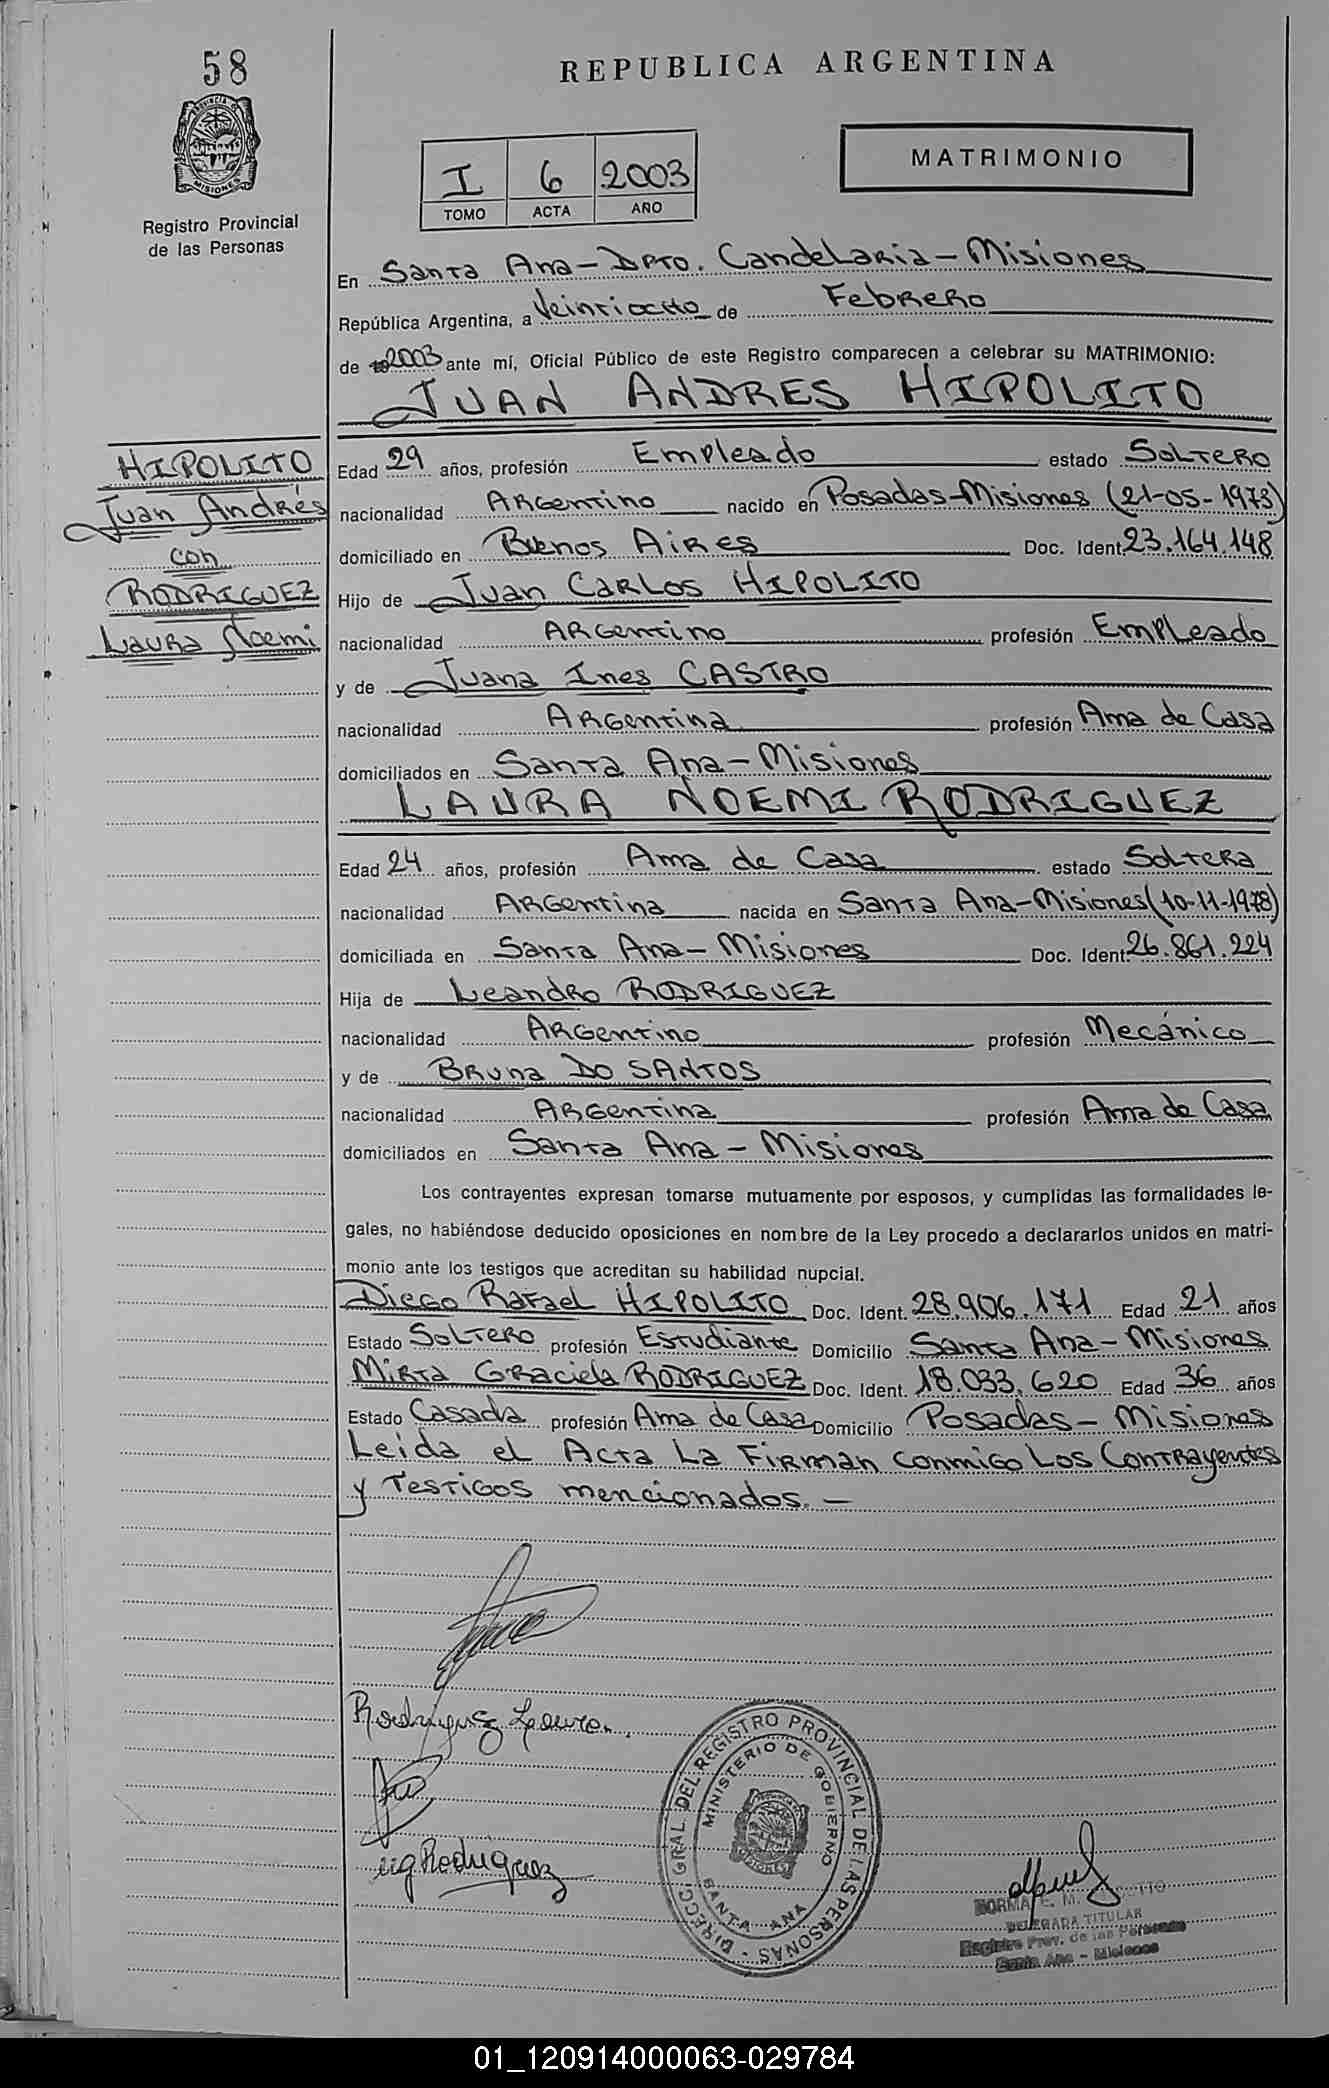 58
REPUBLICA ARGENTINA
PROVINCIA DE
MISIONES
Registro Provincial
de las Personas
I 6 2003
TOMO ACTA AÑO
MATRIMONIO
En Santa Ana - Dpto. Candelaria - Misiones
República Argentina, a Veintiocho de Febrero
de 2003 ante mí, Oficial Público de este Registro comparecen a celebrar su MATRIMONIO:
JUAN ANDRES HIPOLITO
HIPOLITO
Juan Andrés
con
RODRIGUEZ
Laura Noemi
Edad 29 años, profesión Empleado estado Soltero
nacionalidad Argentino nacido en Posadas - Misiones (21-05-1973)
domiciliado en Buenos Aires Doc. Ident. 23.164.148
Hijo de Juan Carlos HIPOLITO
nacionalidad Argentino profesión Empleado
y de Juana Ines CASTRO
nacionalidad Argentina profesión Ama de Casa
domiciliados en Santa Ana - Misiones
LAURA NOEMI RODRIGUEZ
Edad 24 años, profesión Ama de Casa estado Soltera
nacionalidad Argentina nacida en Santa Ana - Misiones (10-11-1978)
domiciliada en Santa Ana - Misiones Doc. Ident. 26.861.224
Hija de Leandro RODRIGUEZ
nacionalidad Argentino profesión Mecánico
y de Bruna DO SANTOS
nacionalidad Argentina profesión Ama de Casa
domiciliados en Santa Ana - Misiones
Los contrayentes expresan tomarse mutuamente por esposos, y cumplidas las formalidades le-
gales, no habiéndose deducido oposiciones en nombre de la Ley procedo a declararlos unidos en matri-
monio ante los testigos que acreditan su habilidad nupcial.
Diego Rafael HIPOLITO Doc. Ident. 28.906.171 Edad 21 años
Estado Soltero profesión Estudiante Domicilio Santa Ana - Misiones
Mirta Graciela RODRIGUEZ Doc. Ident. 18.033.620 Edad 36 años
Estado Casada profesión Ama de Casa Domicilio Posadas - Misiones
Leida el Acta La Firman conmigo Los Contrayentes
y Testigos mencionados. -
Rodriguez Laura
Rodriguez
DIRECC. GRAL. DEL REGISTRO PROVINCIAL DE LAS PERSONAS
MINISTERIO DE GOBIERNO
SANTA ANA
NORMA
DELEGADA TITULAR
Registro Prov. de las Personas
Santa Ana - Misiones
01_120914000063-029784